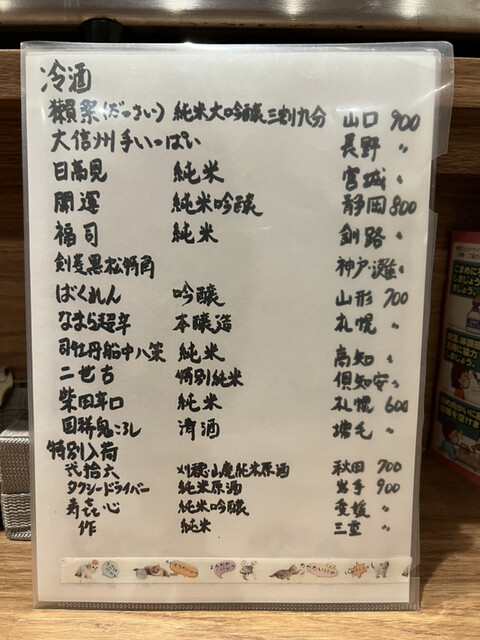 冷酒
獺祭(だっさい) 純米大吟醸三割九分 山口 900
大信州手いっぱい 長野 〃
日高見 純米 宮城 〃
開運 純米吟醸 静岡 800
福司 純米 釧路 〃
剣菱黒松 神戸・灘 〃
ばくれん 吟醸 山形 700
なまら超辛 本醸造 札幌 〃
司牡丹船中八策 純米 高知 〃
二世古 特別純米 倶知安 〃
柴田辛口 純米 札幌 600
国稀鬼ころし 清酒 増毛 〃
特別入荷
弐拾六 刈穂山廃純米原酒 秋田 700
タクシードライバー 純米原酒 岩手 900
寿喜心 純米吟醸 愛媛 〃
作 純米 三重 〃